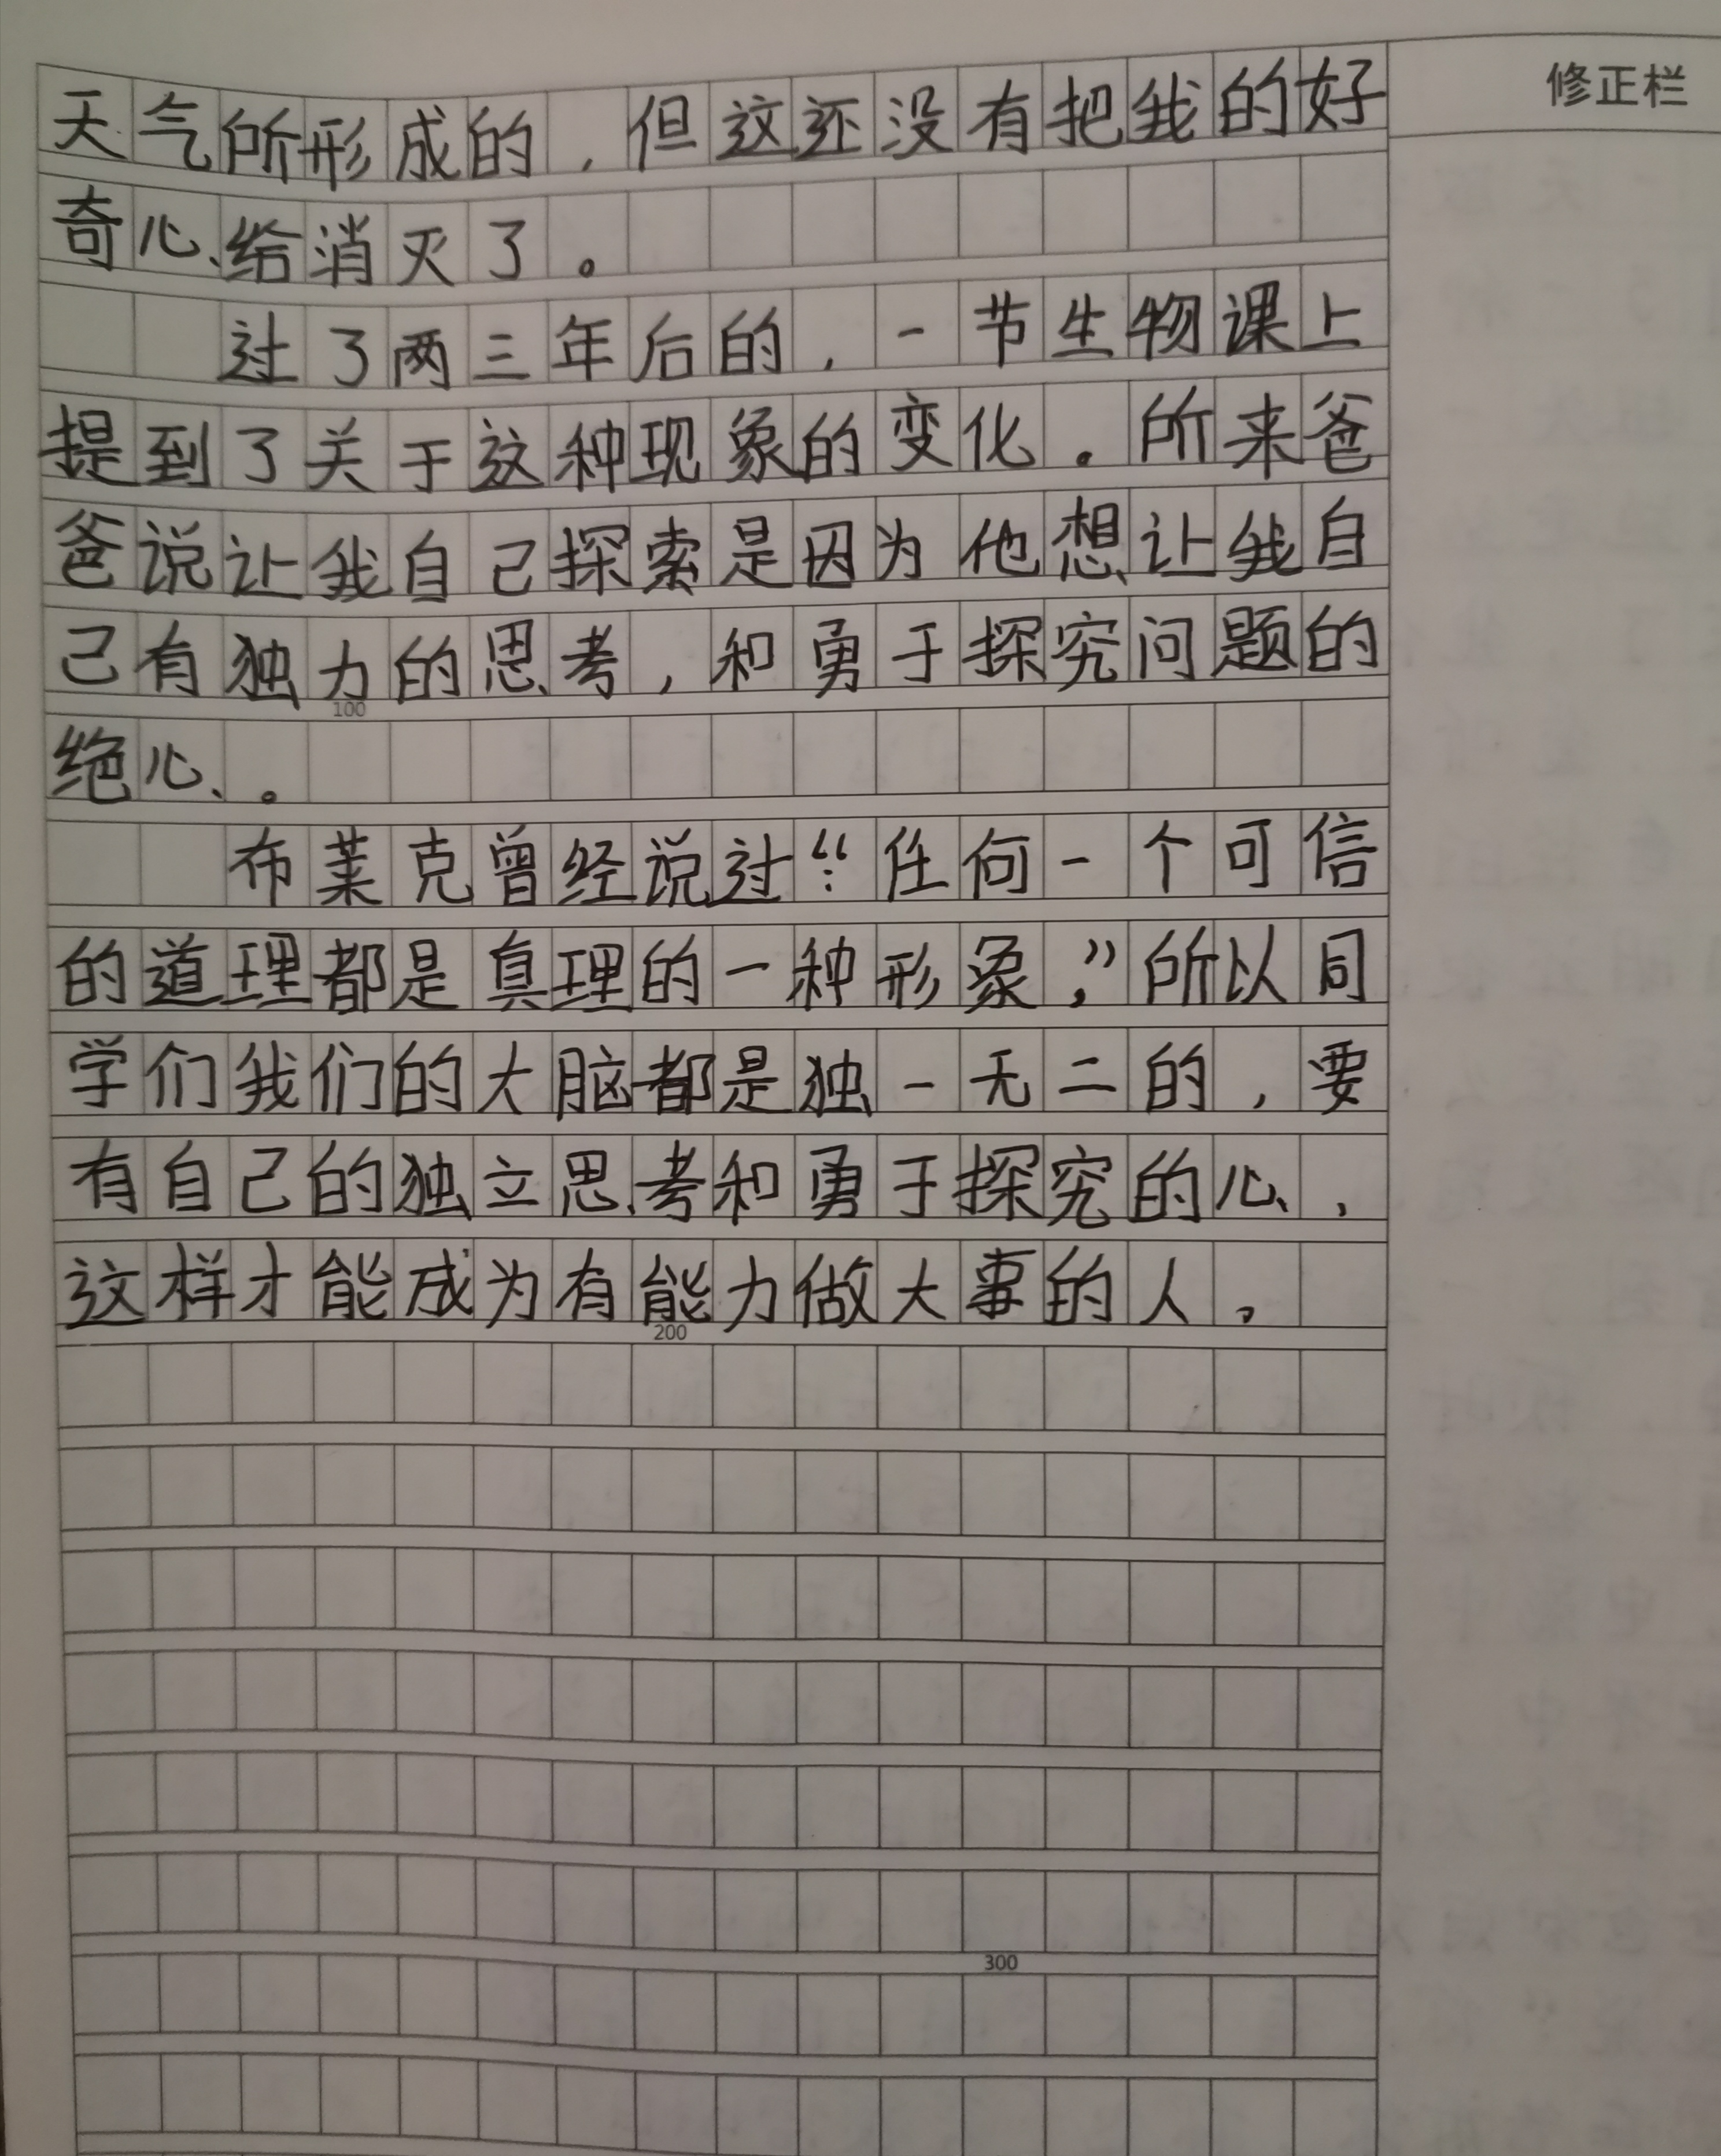 修正栏
天气所形成的，但这还没有把我的好
奇心给消灭了。
过了两三年后的，一节生物课上
提到了关于这种现象的变化。所来爸
爸说让我自己探索是因为他想让我自
己有独力的思考，和勇于探究问题的
绝心。
布莱克曾经说过：“任何一个可信
的道理都是真理的一种形象，”所以同
学们我们的大脑都是独一无二的，要
有自己的独立思考和勇于探究的心，
这样才能成为有能力做大事的人。
100
200
300